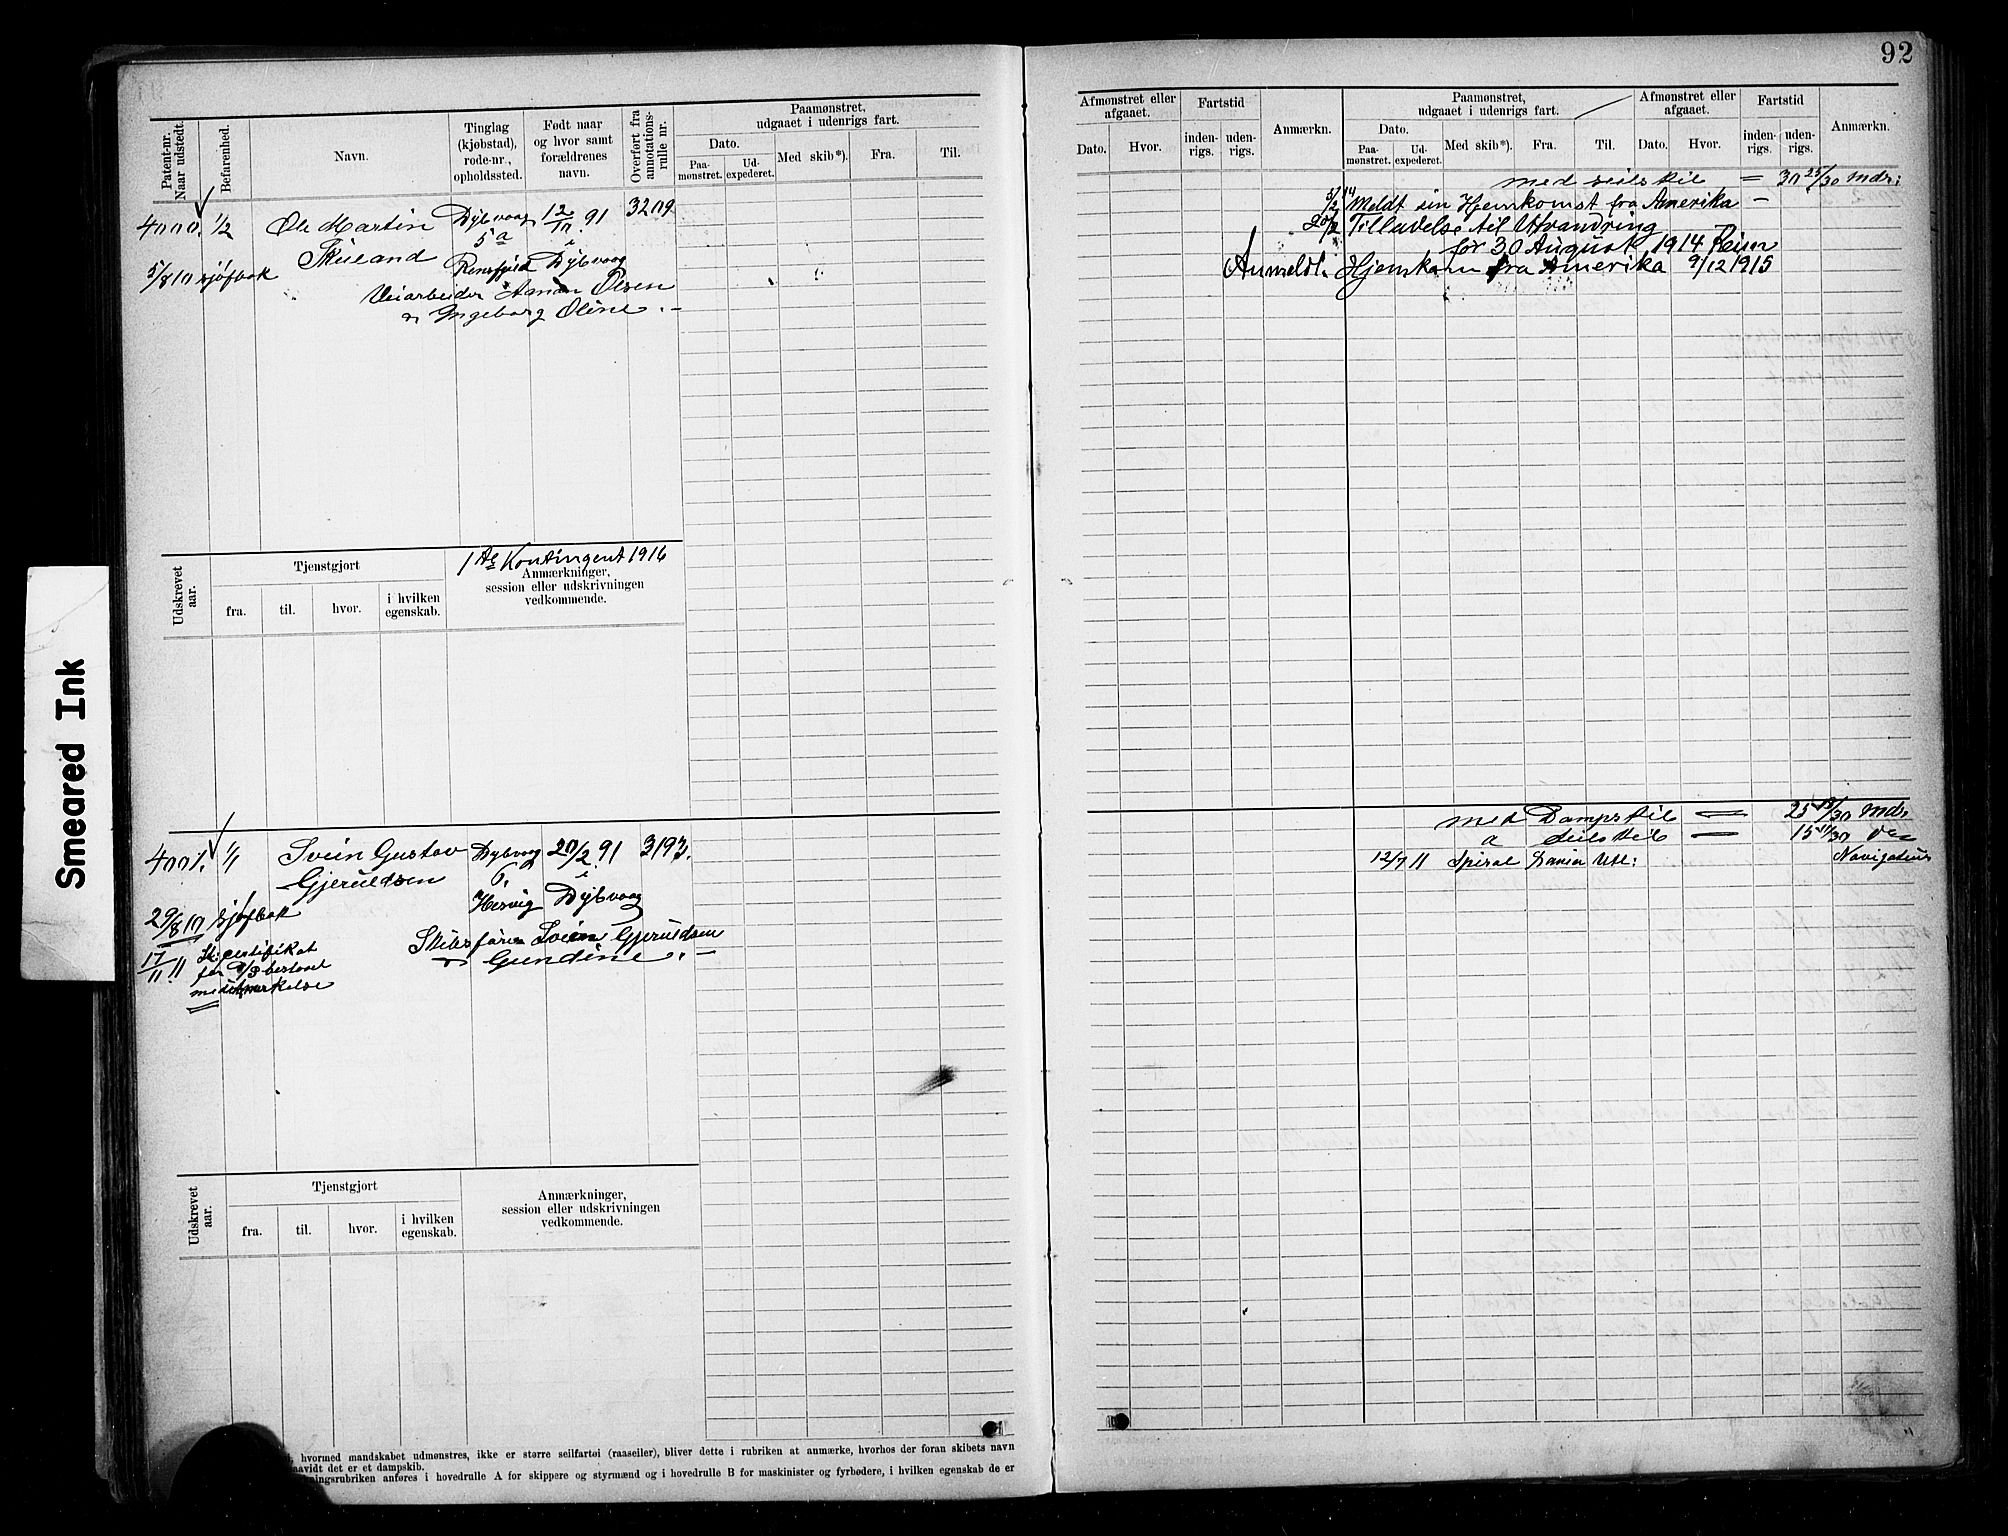 92
Patent-nr.
Naar udstedt.
Befarenhed.
Navn.
Tinglag
(kjøbstad),
rode-nr.,
opholdssted.
Født naar
og hvor samt
forældrenes
navn.
Overført fra
annotations-
rulle nr.
Paamønstret,
udgaaet i udenrigs fart.
Dato.
Paa-
mønstret.
Ud-
expederet.
Med skib*).
Fra.
Til.
4000. 1/2 Ole Martin Dybvaag 12/10 91 3209
Skueland 5a i
5/8 10 sjøfbok Dybvaag
Veiarbeider Aanon Olsen
Ingeborg Oline . –
1ste Kontingent 1916
Udskrevet
aar.
Tjenstgjort
fra.
til.
hvor.
i hvilken
egenskab.
Anmærkninger,
session eller udskrivningen
vedkommende.
4001. 1/1 Svein Gustav Dybvag 20/2 91 3193.
Gjeruldsen 6. i
29/8 10 sjøfbok Hesvig Dybvaag
17/11 11 St: certifikat Skibsfører Svein Gjeruldsen
for bestaaet Gundine . –
Udskrevet
aar.
Tjenstgjort
fra.
til.
hvor.
i hvilken
egenskab.
Anmærkninger,
session eller udskrivningen
vedkommende.
hvormed mandskabet udmønstres, ikke er større seilfartøi (raaseiler), bliver dette i rubriken at anmærke, hvorhos der foran skibets navn
avidt det er et dampskib.
ningsrubriken anføres i hovedrulle A for skippere og styrmænd og i hovedrulle B for maskinister og fyrbødere, i hvilken egenskab de er
Afmønstret eller
afgaaet.
Dato.
Hvor.
Fartstid
inden-
rigs.
uden-
rigs.
Anmærkn.
Paamønstret,
udgaaet i udenrigs fart.
Dato.
Paa-
mønstret.
Ud-
expederet.
Med skib*).
Fra.
Til.
Afmønstret eller
afgaaet.
Dato.
Hvor.
Fartstid
inden-
rigs.
uden-
rigs.
Anmærkn.
med seilskib = 30 25/30 mdr:
5/2 14 Meldt sin Hjemkomst fra Amerika –
Tilladelse til Utvandring
før 30 August 1914
Anmeldt. Hjemkom fra Amerika 9/12 1915
med Dampskib = 25 /30 mdr
seilskib – 15 /30
12/7 11 Spiral
Smeared Ink